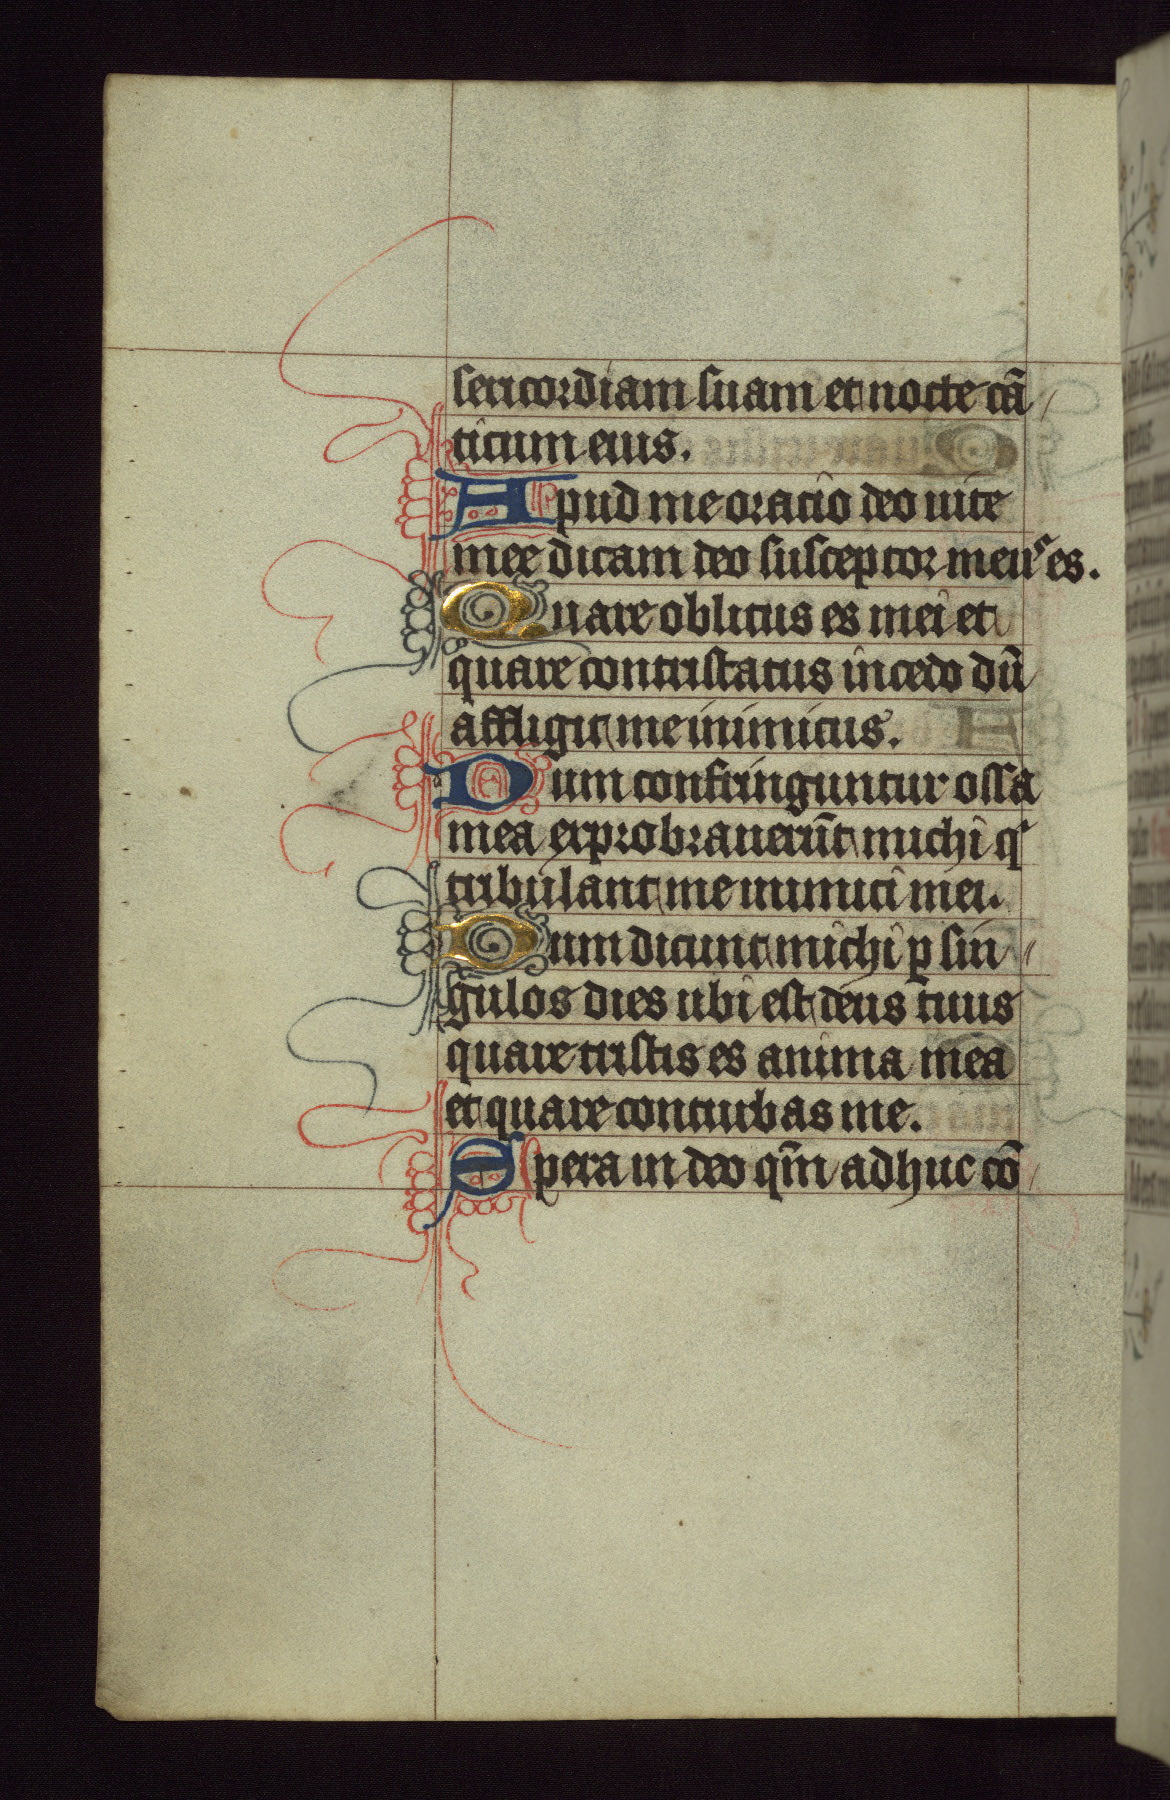 sericordiam suam et nocte cā
ticum eius.
Apud me oracio deo uite
mee dicam deo susceptor meus es.
Quare oblitus es mei et
quare contristatus incedo dū
affligit me inimicus.
Dum confringuntur ossa
mea exprobrauerūt michi q
tribulant me inimici mei.
Dum dicunt michi ꝑ sin
gulos dies ubi est deus tuus
quare tristis es anima mea
et quare conturbas me.
Spera in deo qm̄ adhuc cō